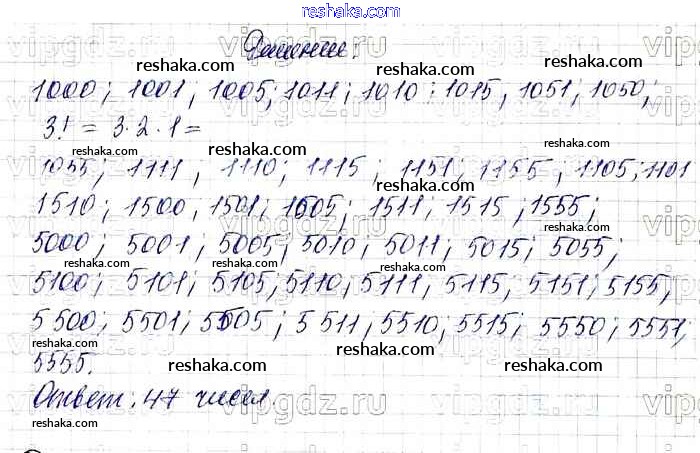 reshaka.ru
Решение:
1000; 1001; 1005; 1011; 1010; 1015, 1051; 1050;
3! = 3·2·1=
1055; 1111; 1110; 1115; 1151; 1155; 1105; 1101
1510; 1500; 1501; 1505; 1511; 1515; 1555;
5000; 5001; 5005; 5010; 5011; 5015; 5055;
5100; 5101; 5105; 5110; 5111; 5115; 5151; 5155;
5500; 5501; 5505; 5511; 5510; 5515; 5550; 5551;
5555.
Ответ. 47 чисел.